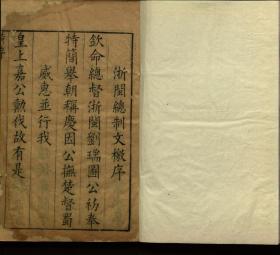 浙閩總制文檄序
欽命總督浙閩劉瑞圖公初奉
特簡舉朝稱慶因公撫楚督蜀
威惠並行我
皇上嘉公勲伐故有是